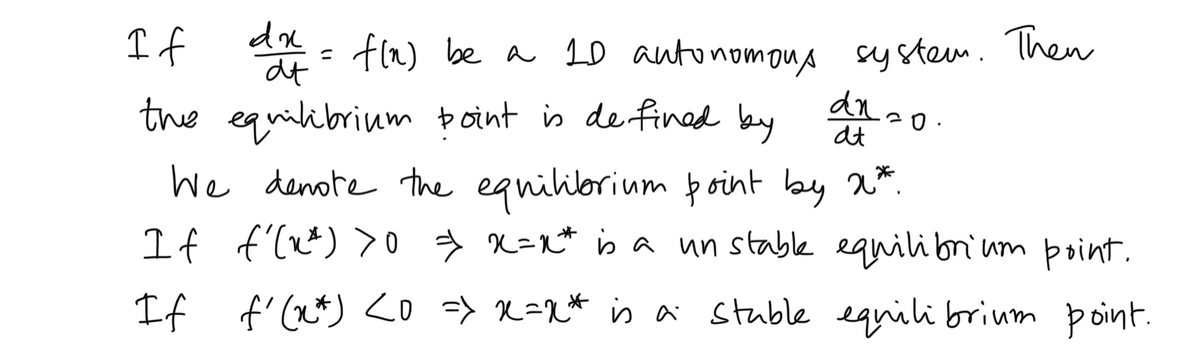 If dx/dt = f(x) be a 1D autonomous system. Then
the equilibrium point is defined by dx/dt = 0.
We denote the equilibrium point by x*.
If f'(x*) > 0 ⇒ x = x* is a unstable equilibrium point.
If f'(x*) < 0 ⇒ x = x* is a stable equilibrium point.